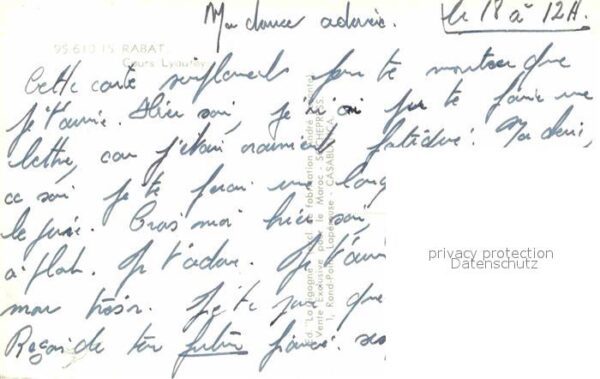 Ma douce adorée.
le 18 à 12H.
95.613.15 RABAT.
Cours Lyautey
Cette carte simplement pour te montrer que
je t'aime. Hier soir, je n'ai pu te faire une
lettre, car j'étais vraiment fatigué. Ma chérie,
ce soir je te ferai une long
le jure. Crois moi hier soir,
à plat. Je t'adore. Je t'aim
mon trésor. Je te jure que
Reçois de ton futur fiancé. ses
Ed. "La Cigogne"
Vente Exclusive pour le Maroc - SOCHEPRESS.
1, Rond-Point Lapérouse - CASABLANCA.
privacy protection
Datenschutz